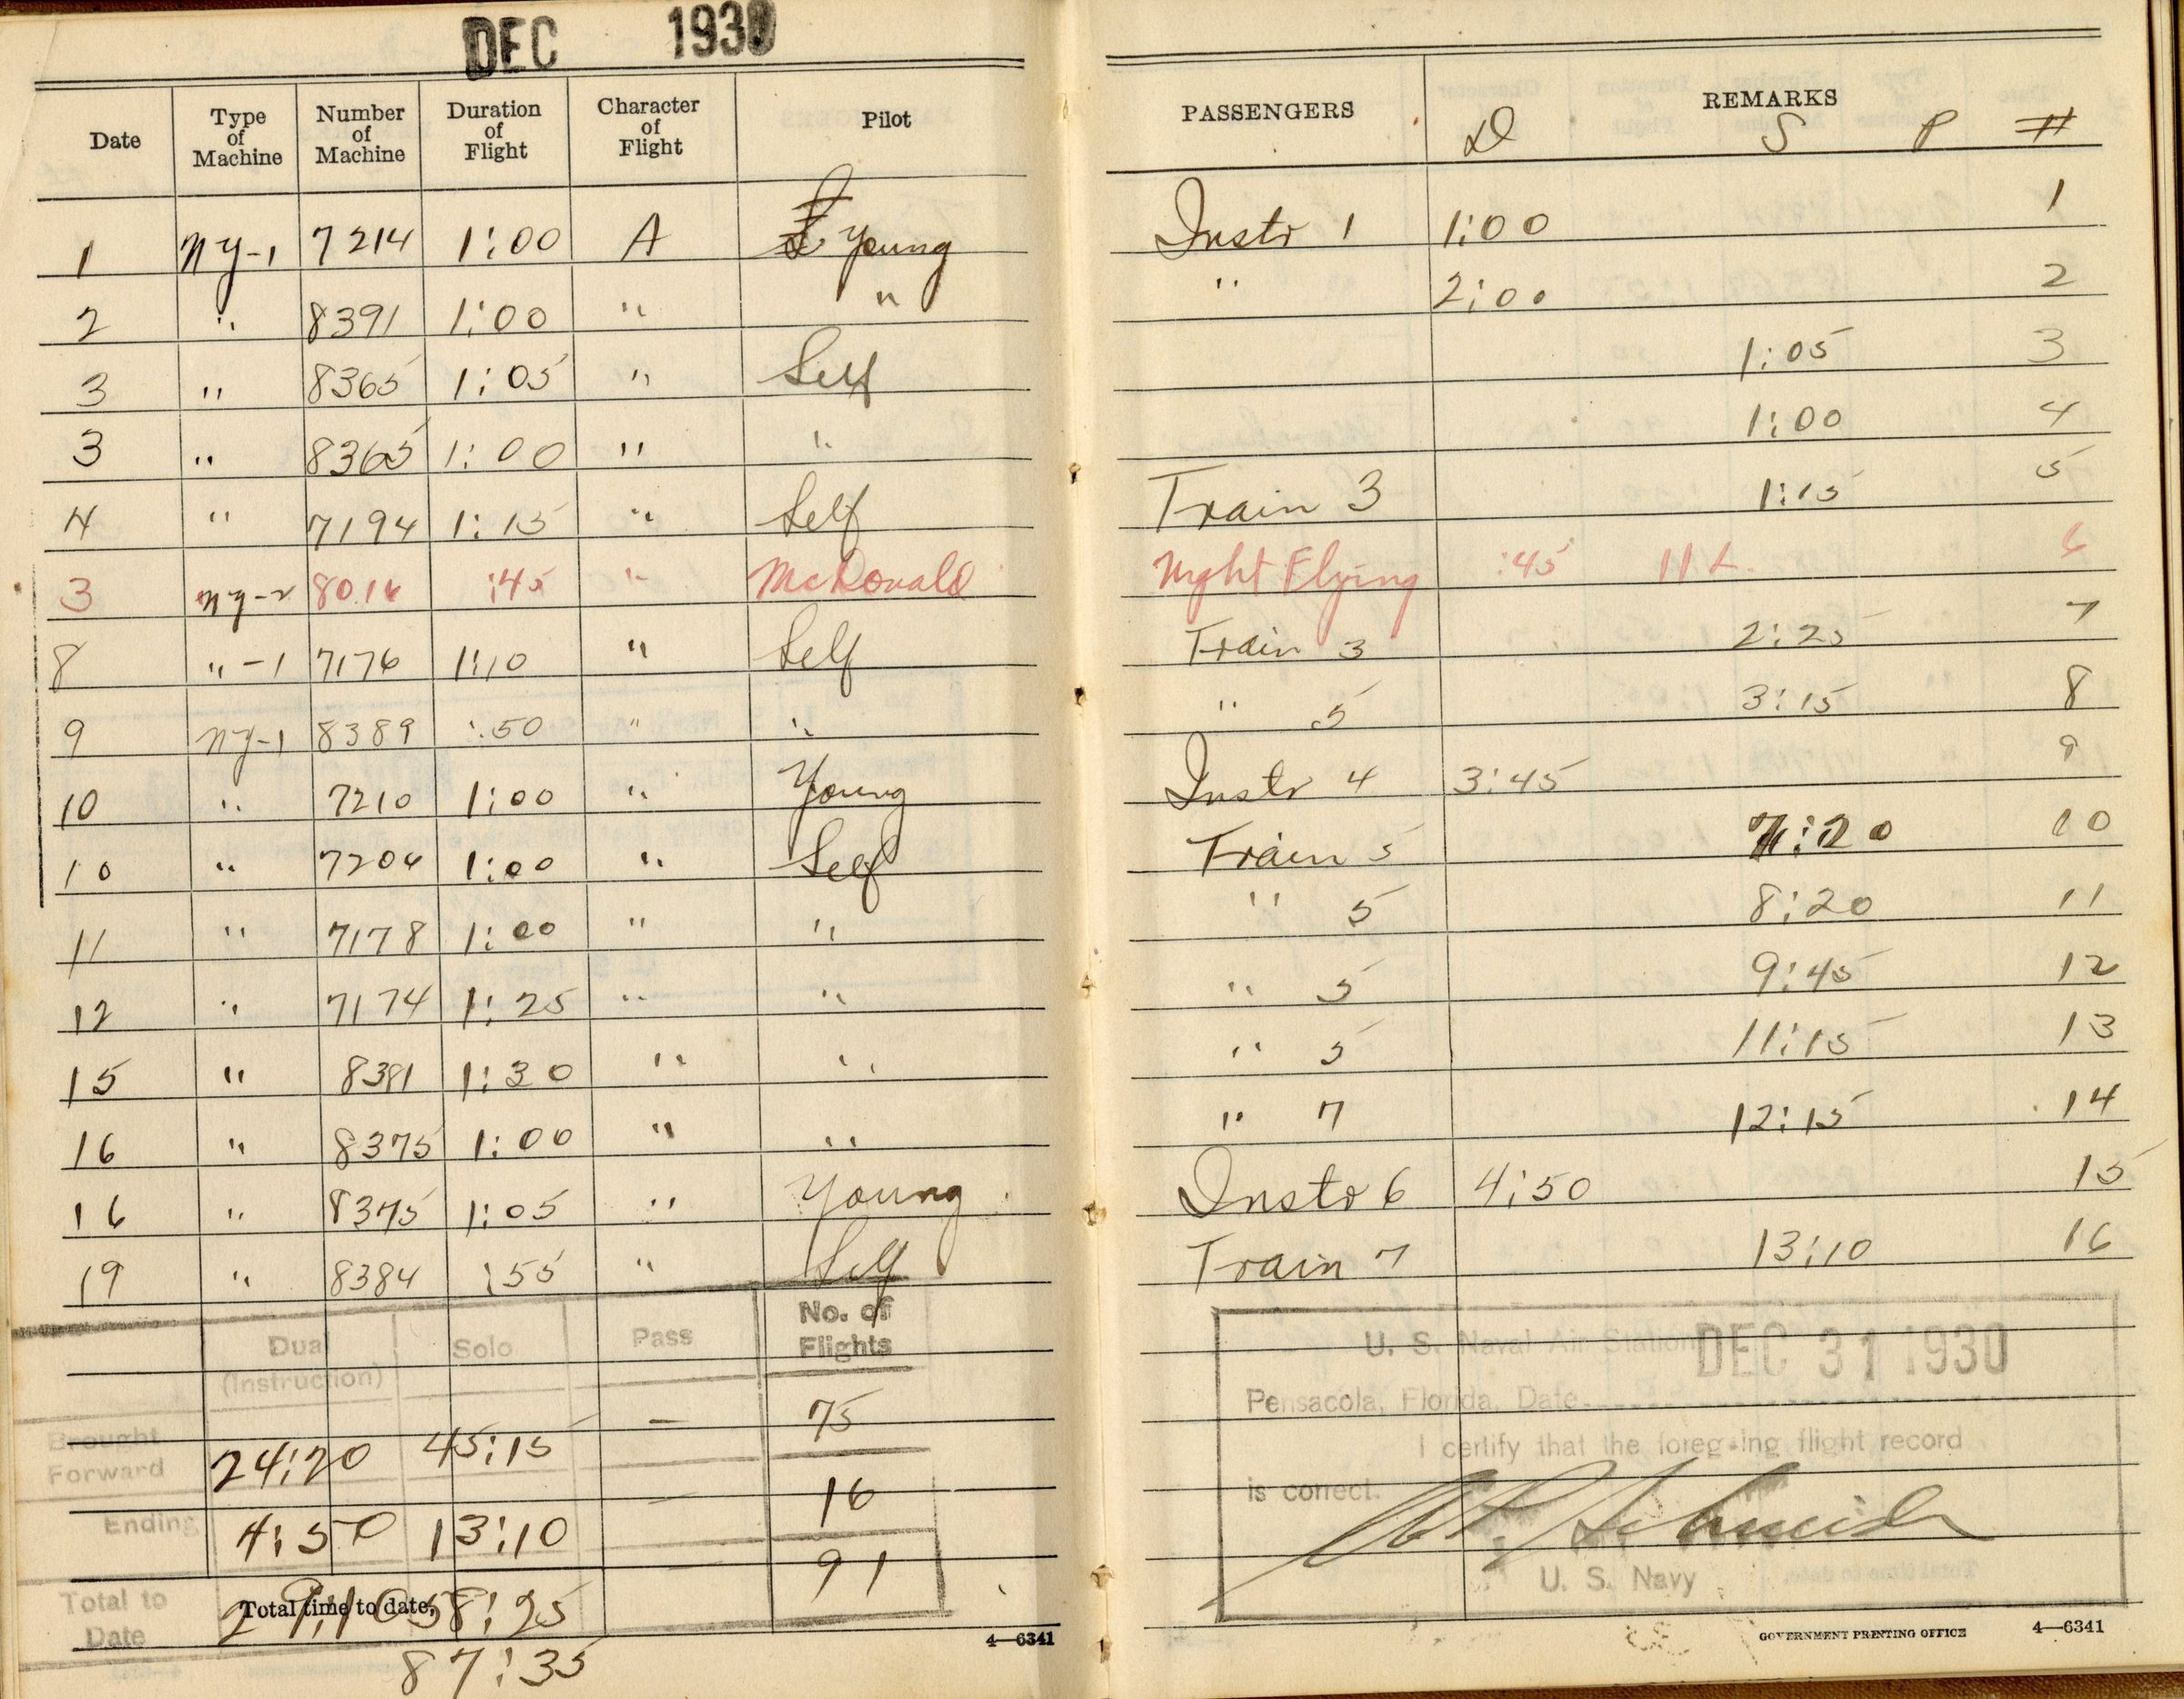 DEC 1930
Date Type of Machine Number of Machine Duration of Flight Character of Flight Pilot PASSENGERS REMARKS
D S P #
1 NY-1 7214 1:00 A Young Instr 1 1:00 1
2 " 8391 1:00 " " " 2:00 2
3 " 8365 1:05 " Self 1:05 3
3 " 8365 1:00 " " 1:00 4
4 " 7194 1:15 " Self Train 3 1:15 5
3 NY-2 8016 :45 " McDonald Night Flying :45 11 L. 6
8 " -1 7176 1:10 " Self Train 3 2:25 7
9 NY-1 8389 :50 " " " 5 3:15 8
10 " 7210 1:00 " Young Instr 4 3:45 9
10 " 7206 1:00 " Self Train 5 7:20 10
11 " 7178 1:00 " " " 5 8:20 11
12 " 7174 1:25 " " " 5 9:45 12
15 " 8381 1:30 " " " 5 11:15 13
16 " 8375 1:00 " " " 7 12:15 14
16 " 8375 1:05 " Young Instr 6 4:50 15
19 " 8384 :55 " Self Train 7 13:10 16
Dual (Instruction) Solo Pass No. of Flights
Brought Forward 24:20 45:15 — 75
Ending 4:50 13:10 — 16
Total to Date 29:10 58:25 91
Total time to date,
87:35
4—6341
U. S. Naval Air Station
Pensacola, Florida, Date DEC 31 1930
I certify that the foregoing flight record
is correct.
U. S. Navy
GOVERNMENT PRINTING OFFICE 4—6341